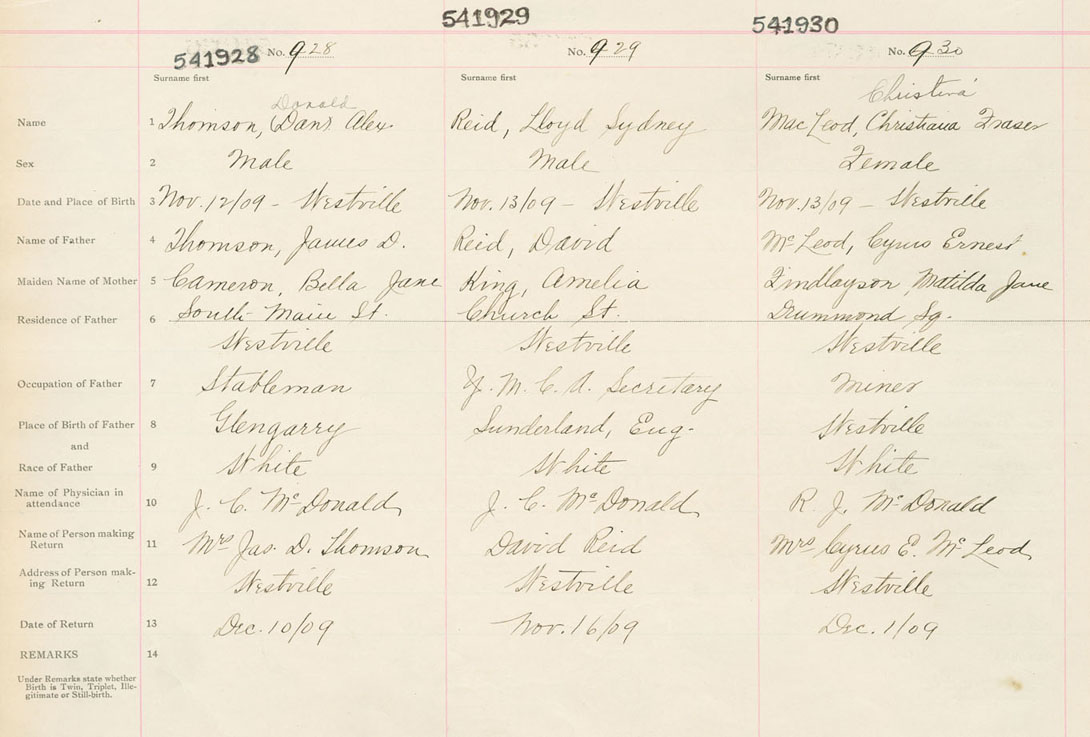 541929
541930
541928 No. 928
No. 929
No. 930
Surname first
Surname first
Surname first
Donald
Christina
Name 1 Thomson, (Danl Alex Reid, Lloyd Sydney MacLeod, Christiana Fraser
Sex 2 Male Male Female
Date and Place of Birth 3 Nov. 12/09 - Westville Nov. 13/09 - Westville Nov. 13/09 - Westville
Name of Father 4 Thomson, James D. Reid, David McLeod, Cyrus Ernest
Maiden Name of Mother 5 Cameron, Bella Jane King, Amelia Findlayson, Matilda Jane
Residence of Father 6 South Main St. Church St. Drummond Sq.
Westville Westville Westville
Occupation of Father 7 Stableman Y. M. C. A. Secretary Miner
Place of Birth of Father 8 Glengarry Sunderland, Eng. Westville
and
Race of Father 9 White White White
Name of Physician in
attendance 10 J. C. McDonald R. J. McDonald J. C. McDonald
Name of Person making
Return 11 Mrs Jas. D. Thomson David Reid Mrs Cyrus E. McLeod
Address of Person mak-
ing Return 12 Westville Westville Westville
Date of Return 13 Dec. 10/09 Nov. 16/09 Dec. 1/09
REMARKS 14
Under Remarks state whether
Birth is Twin, Triplet, Ille-
gitimate or Still-birth.